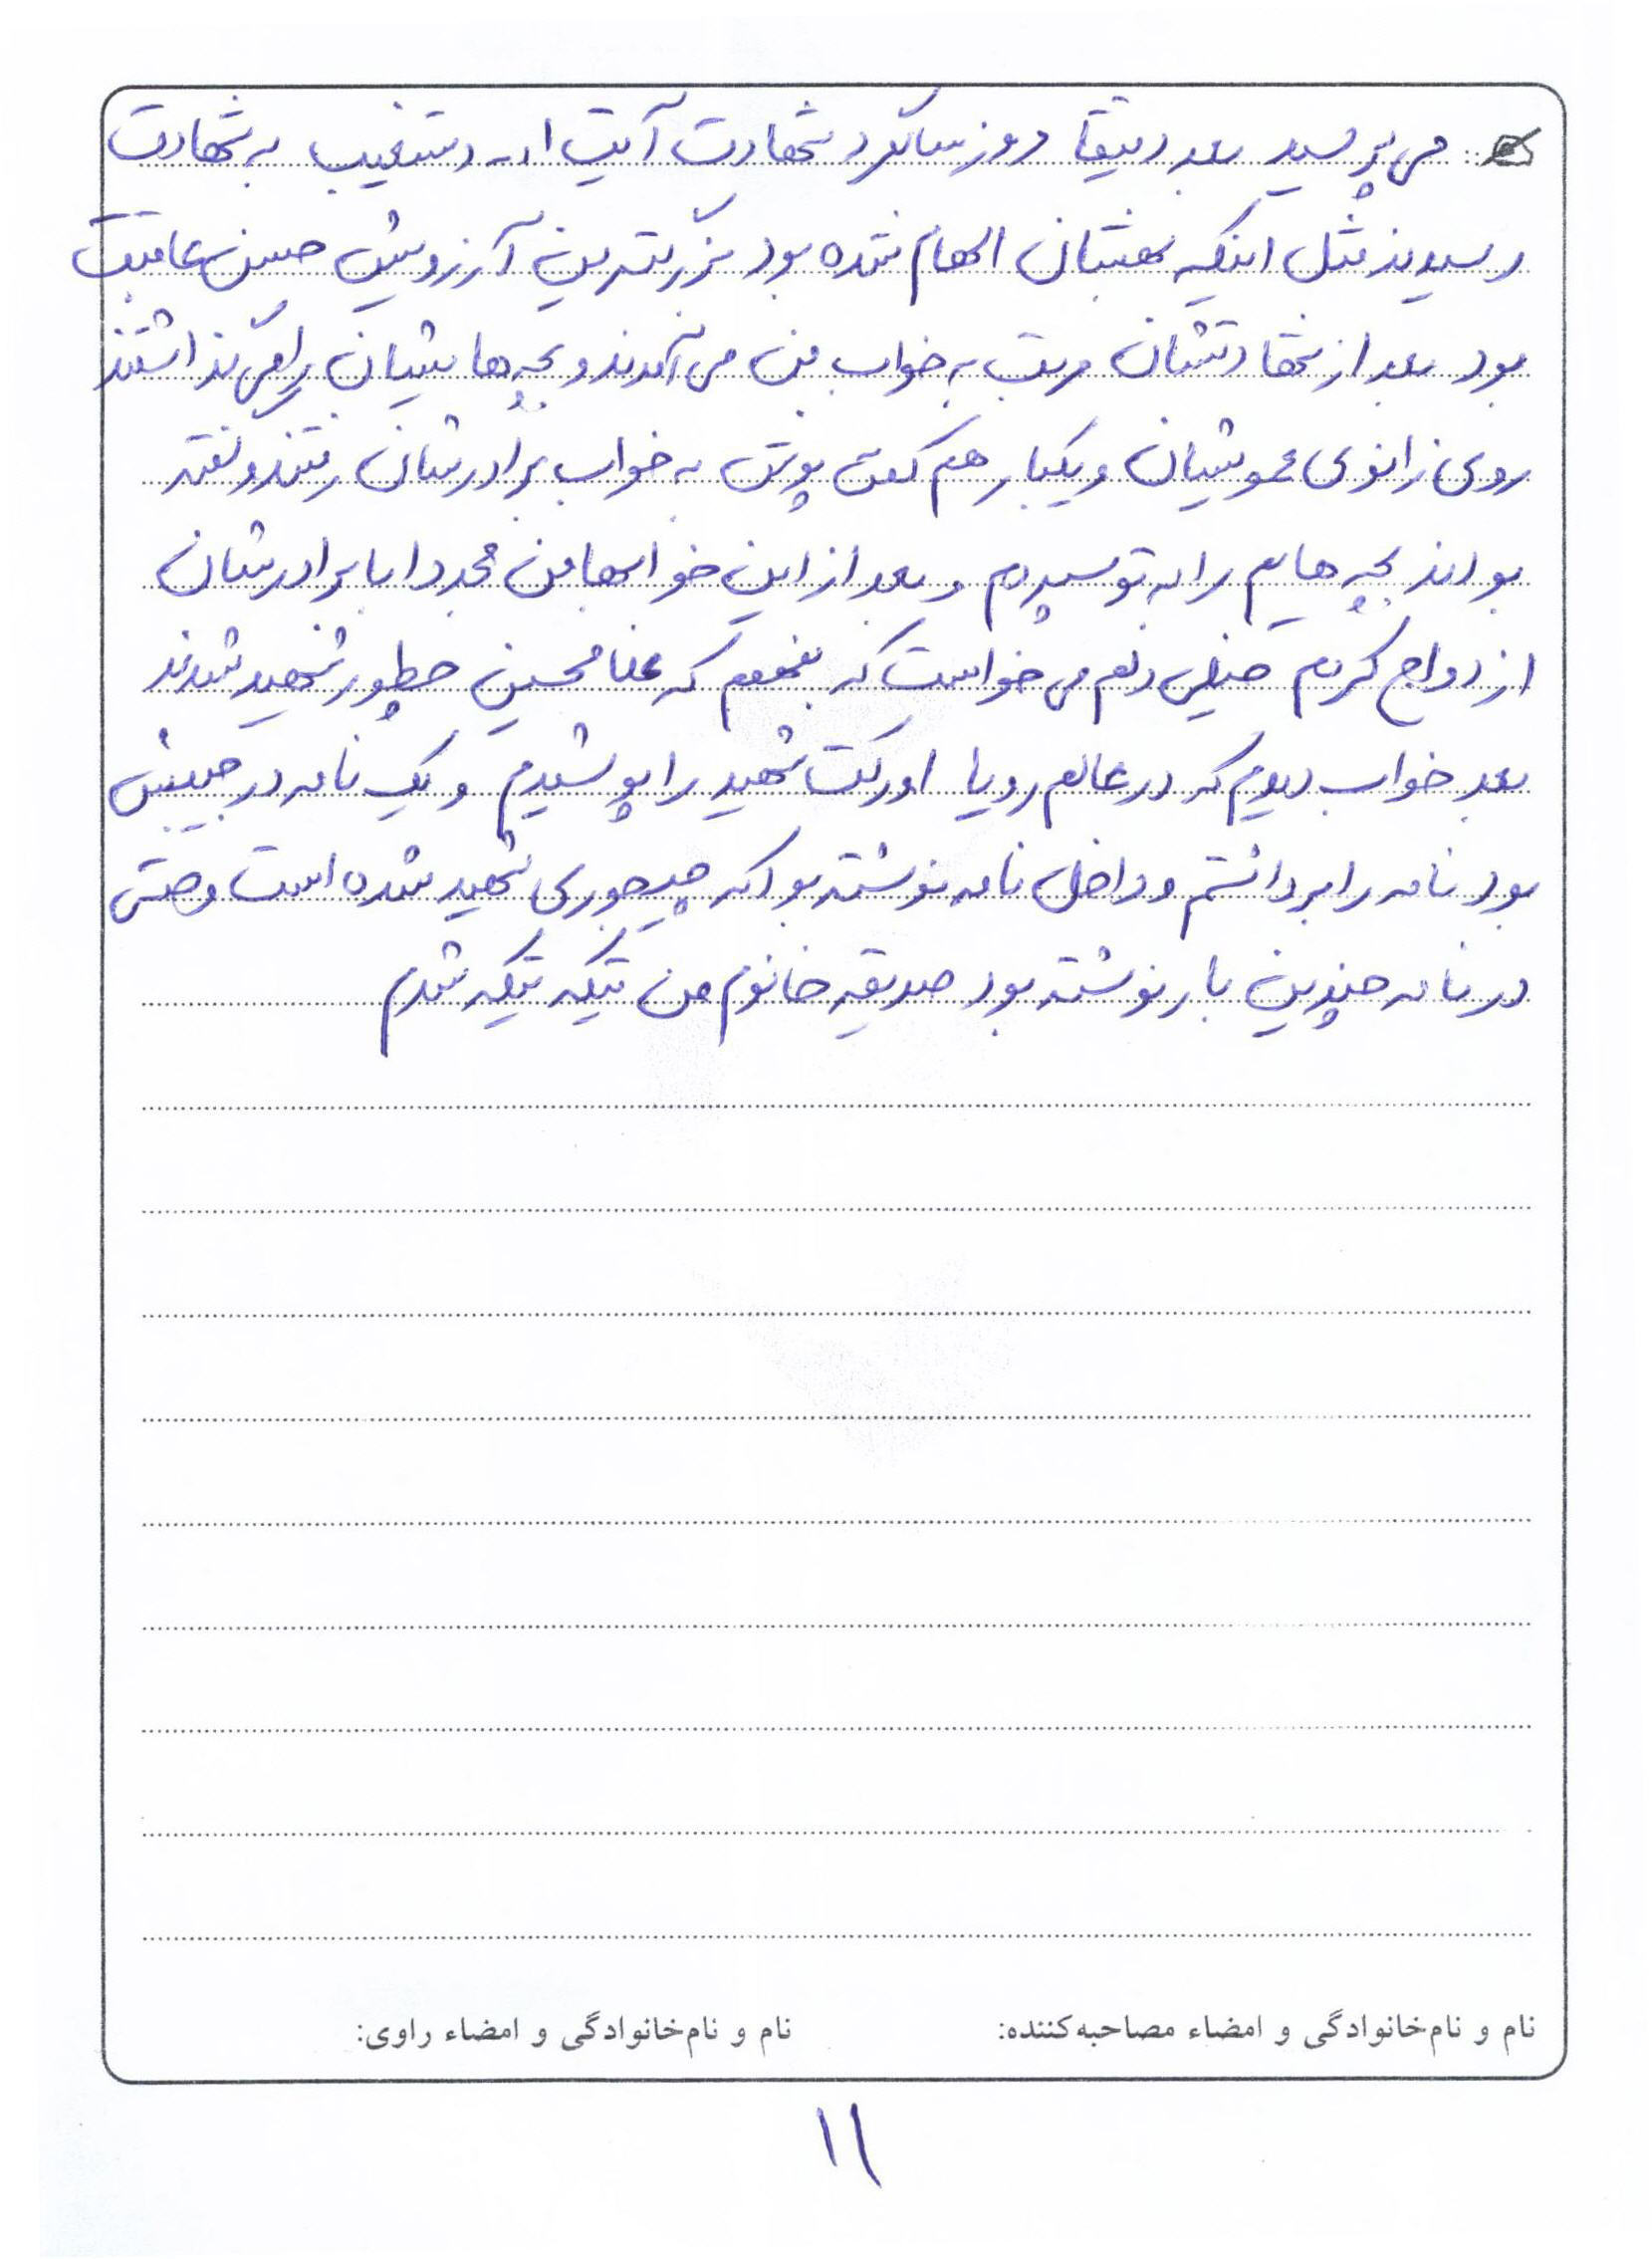 می پرسید بعد دقیقا روز سالگرد شهادت آیت ا... دستغیب به شهادت
رسیدند مثل اینکه بهشان الهام شده بود بزرگترین آرزویش حسن عاقبت
بود بعد از شهادتشان مرتب به خواب من می آمدند و بچه هایشان را می گذاشتند
روی زانوی عمویشیان و یکبار هم کفن پوش به خواب برادرشان رفتند و گفته
بودند بچه هایم را به تو سپردم و بعد از این خوابها من مجددا با برادرشان
ازدواج کردم خیلی دلم می خواست که بفهمم که غلامحسین چطور شهید شدند
بعد خواب دیدم که در عالم رویا اورکت شهید را پوشیدم و یک نامه در جیبش
بود نامه را برداشتم و داخل نامه نوشته بود که چیجوری شهید شده است و حتی
در نامه چندین بار نوشته بود صدیقه خانوم من تیکه تیکه شدم
نام و نام‌خانوادگی و امضاء مصاحبه‌کننده: نام و نام‌خانوادگی و امضاء راوی:
۱۱